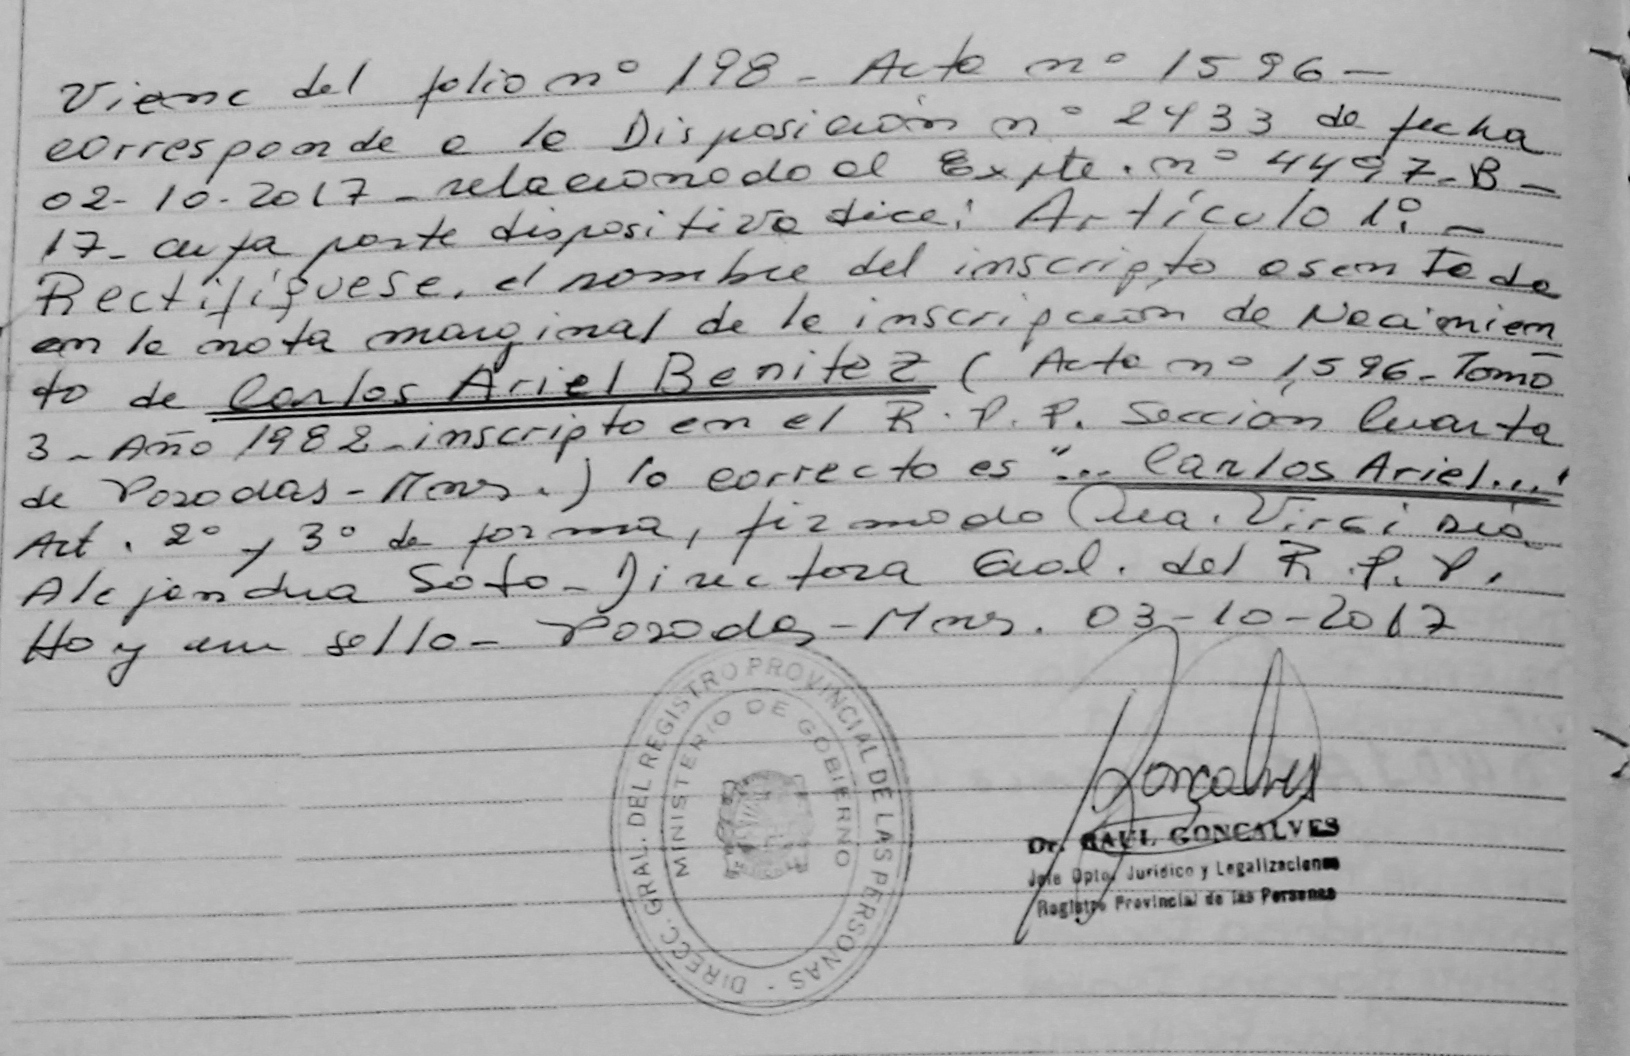 Viene del folio nº 198 - Acta nº 1596 -
corresponde a la Disposición nº 2433 de fecha
02-10-2017 - relacionado al Expte. nº 4497-B-
17- cuya parte dispositiva dice: Artículo 1º. -
Rectifíquese, el nombre del inscripto asentada
en la nota marginal de la inscripción de Nacimien
to de Carlos Ariel Benitez ( Acta nº 1596 - Tomo
3 - Año 1982 - inscripto en el R. P. P. Sección Cuarta
de Posadas - Mnes. ) lo correcto es "... Carlos Ariel..."
Art. 2º y 3º de forma, firmado Dra. Virginia
Alejandra Soto - Directora Gral. del R. P. P.
Hay un sello - Posadas - Mnes. 03-10-2017
DIRECC. GRAL. DEL REGISTRO PROVINCIAL DE LAS PERSONAS -
MINISTERIO DE GOBIERNO
Goncalves
Dr. RAUL GONCALVES
Jefe Dpto. Jurídico y Legalizaciones
Registro Provincial de las Personas